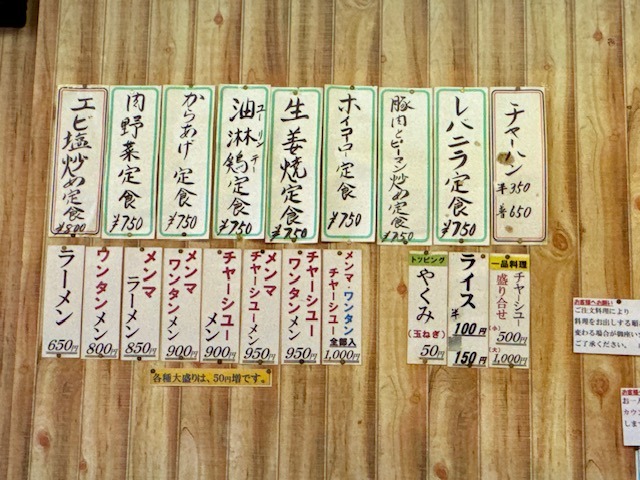 チャーハン
半350
普650
レバニラ定食
¥750
豚肉とピーマン炒め定食
¥750
ホイコーロー定食
¥750
生姜焼定食
¥750
油淋鶏定食
ユーリンチー
¥750
からあげ定食
¥750
肉野菜定食
¥750
エビ塩炒め定食
¥800
一品料理
チャーシュー
盛り合せ
(小)
500円
(大)
1,000円
ライス
半
100円
150円
トッピング
やくみ
(玉ねぎ)
50円
メンマ・ワンタン
チャーシュー
全部入
1,000円
チャーシュー
ワンタンメン
950円
メンマ
チャーシューメン
950円
チャーシュー
メン
900円
メンマ
ワンタンメン
900円
メンマ
ラーメン
850円
ワンタンメン
800円
ラーメン
650円
各種大盛りは、50円増です。
お客様へお願い
ご注文料理により
料理をお出しする順
変わる場合が御座いま
ご了承ください。
お客様
お一人
カウン
しま